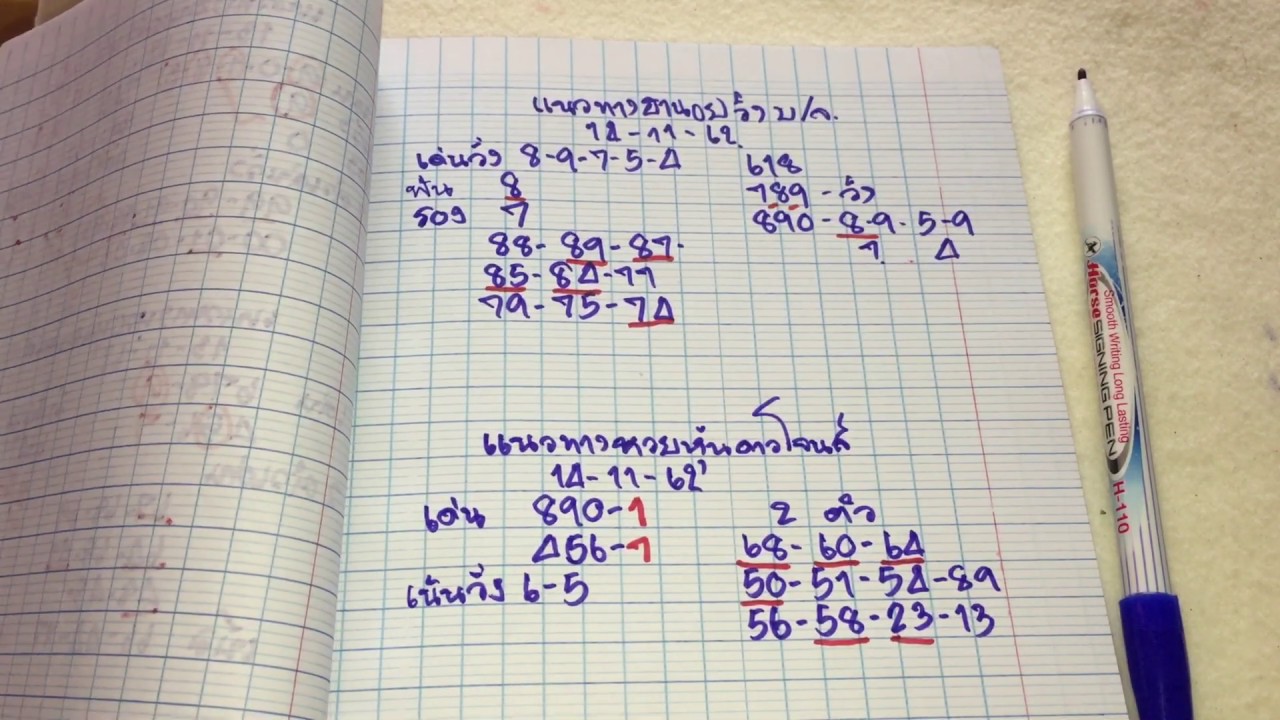 แนวทางฮานอย วิ่ง บ/ล.
14-11-62
เด่นวิ่ง 8-9-7-5-4
ฟัน 8
รอง 7
88-89-87
85-84-77
79-75-74
618
789 - วิ่ง
890-8-9. 5-9
7 4
แนวทางหวยหุ้นดาวโจนส์
14-11-62
เด่น 890-1
456-7
เน้นวิ่ง 6-5
2 ตัว
68-60-64
50-51-54-89
56-58-23-13
Horse SIGNING PEN H-110
Smooth Writing Long Lasting